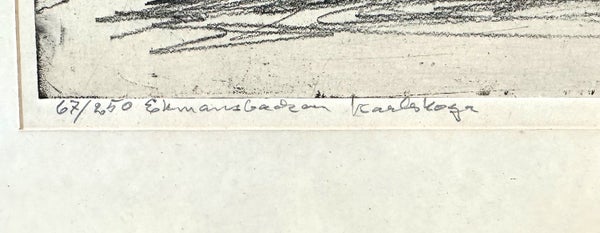 67/250 Ekmansbadzen Karlskoga